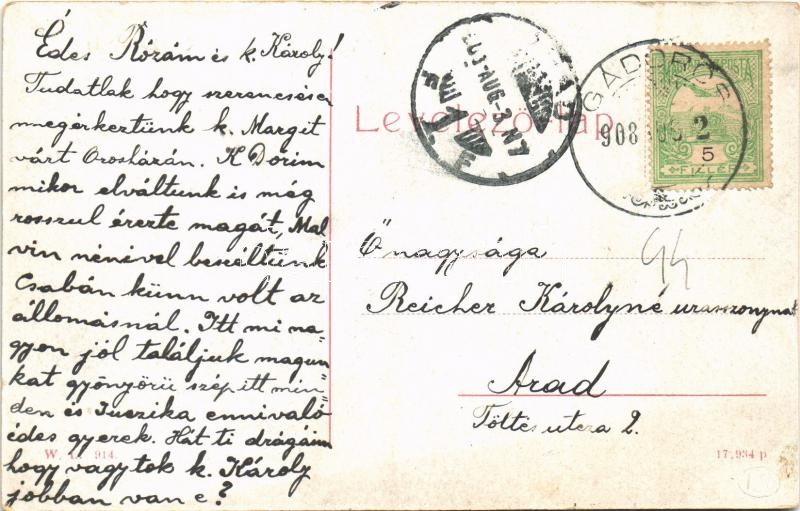 Édes Rózám és k. Károly!
Tudatlak hogy szerencsésen
megérkeztünk k. Margit
várt Orosházán. K Dórim
mikor elváltunk is még
rosszul érezte magát, Mal
vin nénivel beszéltünk
Csabán künn volt az
állomásnál. Itt mi na-
gyon jól találjuk magun
kat gyönyörü szép itt min-
den és Juczika ennivaló
édes gyerek. Hát ti drágáim
hogy vagytok k. Károly
jobban van e?
W. L. 914.
Levelező-lap
ARAD
AUG-3
GÁDOROS
908 2
5
FILLÉR
94
Őnagysága
Reicher Károlyné urasszonynak
Arad
Töltés utcza 2.
17,934 p